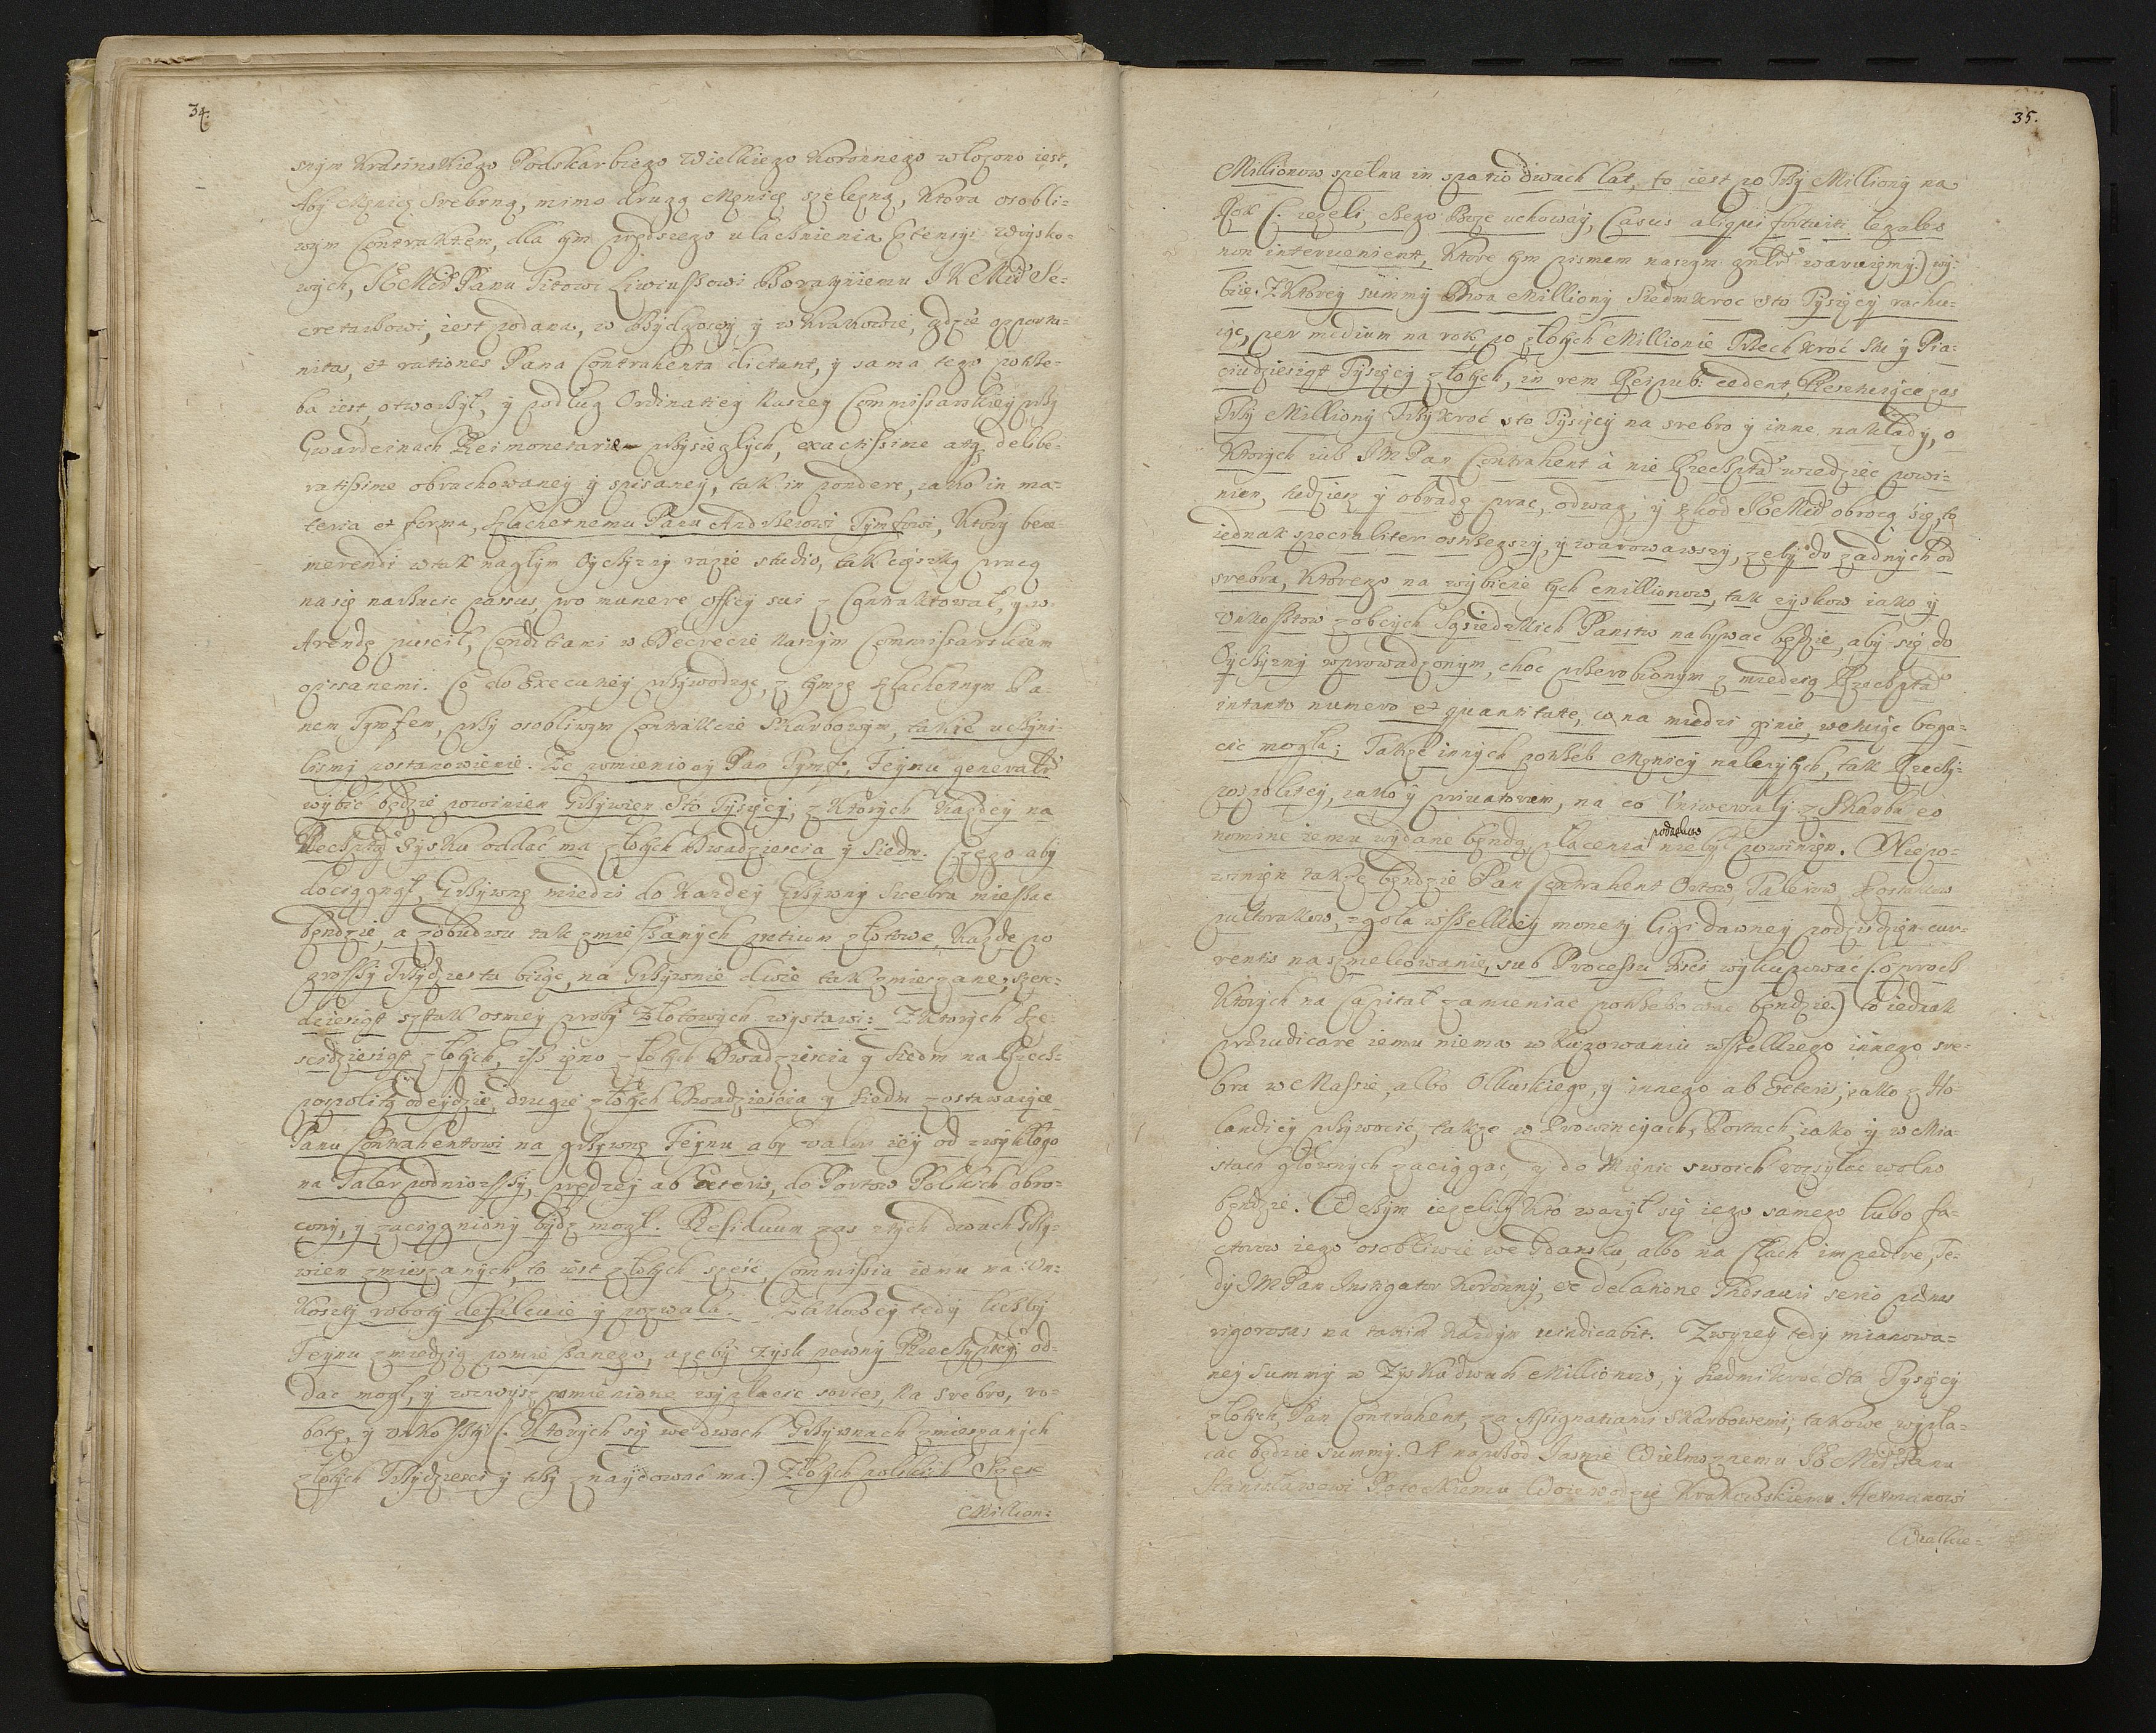 34.
snym Krasinskiego Podskarbiego Wielkiego Koronnego włozono iest,
Aby Męnicę Srebrną, mimo drugą Męnicę szelęzną, Ktora osobli-
wym Contraktem, dla tym prędszego ułacnienia Ptensyi woysko-
wych, JEMści Panu Titowi Liwiuszowi Boratyniemu JKEMści Se-
cretarzowi, iest podana, w Bydgosczy y w Krakowie, gdzie opportu-
nitas, et rationes Pana Contrahenta dictant, y sama tego potrze-
ba iest, otworzył, y podług Ordinatiey Naszey Commissarskiey przy
Gwardeinach Rei monetariæ przysięgłych, exactissime atq deliбe-
ratissime obrachowaney y spisaney, tak in pondere, iako in ma-
teria et forma, Szlachetnemu Panu Andrzeiowi Tymfowi, Ktory bene
merendi w tak nagłym Oyczyzny razie studio, tak cięszką pracę
na się narzucic passus, pro munere Officy sui z Contraktował, y w
Arendę puscił, Conditiami w Decrecie Naszym Commissarskiem
opisanemi. Co do Execuciey przywodząc, z tymze Szlachetnym Pa-
nem Tymfem, przy osobliwym Contrakcie Skarbowym, takie uczyni-
lismy postanowienie. Ze pomieniony Pan Tymf, Feynu generatr
wybić będzie powinien Grzywien Sto Tysięcy, z Ktorych Kazdey na
Rzeczptą Zysku oddać ma złotych Dwadziescia y Siedm. Czego aby
dociągnął, Grzywnę miedzi do Kazdey Grzywny Srebra mieszac
będzie, a z obudwu tak zmieszanych pretium złotowe, Kazde po
groszy Trzydziestu biiąc, na Grzywnie dwie tak zmieszane, szesc-
dziesiąt sztuk osmey proby złotowych wystawi: Z Ktorych Sze-
scidziesiąt złotych, isz iedno złotych Dwadziescia y Siedm na Rzecz-
pospolitą odeydzie, drugie złotych Dwadzieścia y Siedm zostawaiące
Panu Contrahentowi na grzywnę Feynu aby valor iey od zwykłego
na Taler podniozszy, prędzey ab Exteris, do Portow Polskich obro-
cony, y zaciągniony bydz mogł. Residuum zas z tych dwuch Grzy-
wien zmieszanych, to iest złotych sześć, Commissia iemu na Un-
koszty roboty destinuie y pozwala. Z takowey tedy liczby
Feynu z miedzią pomieszanego, azeby Zysk pewny Rzeczyptey od-
dac mogł, y wzwysz pomienione wypłacic sortes, na srebro, ro-
botę, y unkoszty (: Ktorych się we dwoch Grzywnach zmieszanych
złotych Trzydziesci y trzy znaydować ma:) Złotych polskich Szesc
Million-
35.
Millionow spełna in spatio dwuch lat, to iest po Trzy Milliony na
Rok (: iezeli, czego Boze uchoway, Casus aliqui fortuiti legales
non intervenient, Ktore tym pismem naszym gnlr waruiemy:) wy-
biie. Z Ktorey summy Dwa Milliony Siedmkroc sto Tysięcy rachu-
iąc, per medium na rok po złotych Millionie Trzech kroć Stu y Pia-
ciudziesiąt Tysięcy złotych, in rem Reipub: cedent, Resztuiące zas
Trzy Milliony Trzykroć sto Tysięcy na srebro y inne nakłady, o
Ktorych iuz JM Pan Contrahent à nie Rzeczpta wiedziec powi-
nien, tudziesz y obradę prac, odwag, y szkod JEMści obrocą się, to
iednak specialiter ostrzegszy, y warowawszy, zeby do zadnych od
srebra, Ktorego na wybicie tych Millionow, tak zyskow iako y
Unkosztow z obcych Sąsiedzkich Panstw nabywac będzie, aby się do
Oyczyzny wprowadzonym, choc przerobionym z miedzią Rzeczpta
in tanto numero et quantitate, co na miedzi ginie, wetuiąc boga-
cic mogła; Takze innych potrzeb Męnicy nalezytych, tak Rzeczy-
pospolitey, iako y privatorum, na co Uniwersały z Skarbu eo
nomine iemu wydane będą, płacenia podatkow nie był powinien. Niepo-
winien takze będzie Pan Contrahent Ortow, Talerow, Szostakow
pułtorakow, zgoła wszelkiey monety ligi dawney podzisdzien cur-
rentis na szmelcowanie, sub Processu Fisci wykupować (: oprocz
Ktorych na Capitał zamieniac potrzebować będzie:) to iednak
præiudicare iemu niema w kupowaniu wszelkiego innego sre-
bra w Massie, albo Olkuskiego, y innego ab Exteris, iako z Ho-
landiey przywozic, takze w Prowincyach, Portach, iako y w Mia-
stach głownych zaciągać, y do Mięnic swoich rozsyłac wolno
będzie. W czym iezeliby kto wazył się iego samego lubo fa-
ctorow iego osobliwie we Gdansku, albo na Cłach impedire, Te-
dy JM Pan Instigator Koronny, ex delatione Thesauri serio pænas
rigorosas na takim kazdym vindicabit. Zwyszey tedy mianowa-
ney Summy w Zysku dwuch Millionow, y siedmikroc Sta Tysięcy
złotych, Pan Contrahent, za Assignatiami Skarbowemi, takowe wypła-
cac będzie summy. A naprzod Jasnie Wielmoznemu JE Mści Panu
Stanisławowi Potockiemu Woiewodzie Krakowskiemu Hetmanowi
Wielkie-